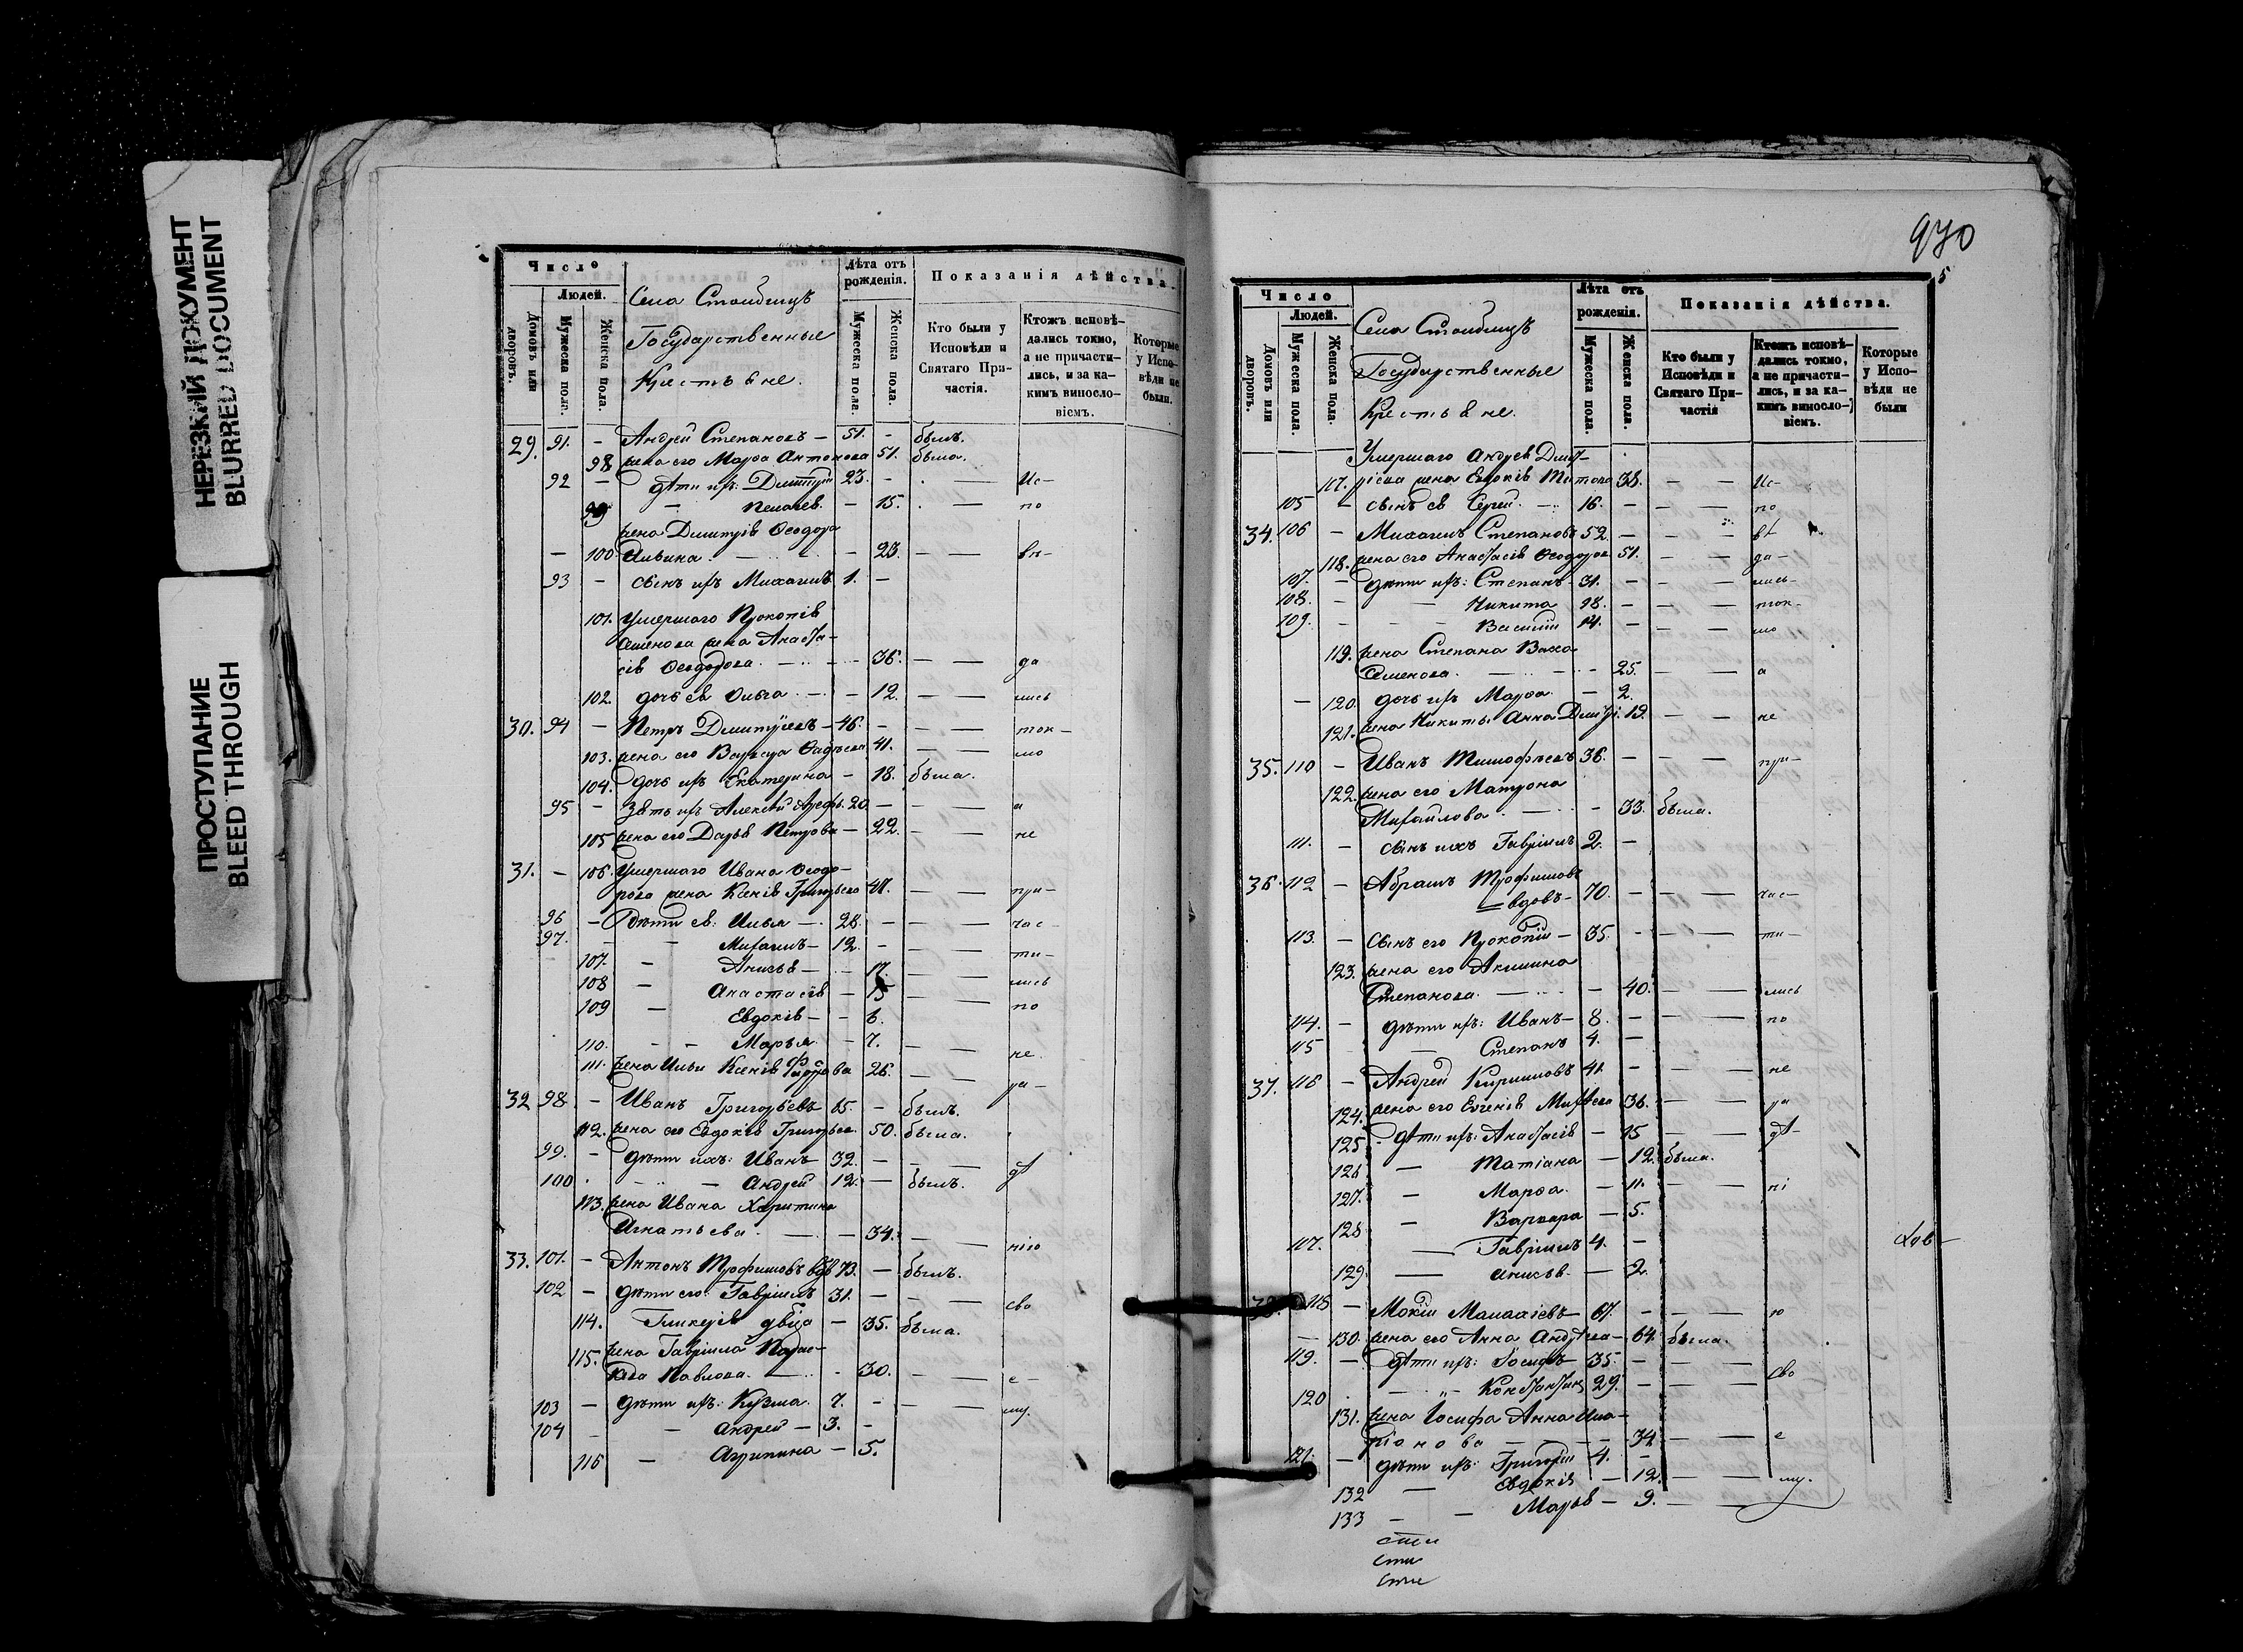 НЕРЕЗКИЙ ДОКУМЕНТ
BLURRED DOCUMENT
ПРОСТУПАНИЕ
BLEED THROUGH
Число
Людей.
Домовъ или дворовъ.
Мужеска пола.
Женска пола.
Села
Государственные
Крестьяне.
Лѣта отъ рожденія.
Мужеска пола.
Женска пола.
Показанія дѣйства.
Кто были у Исповѣди и Святаго Причастія.
Ктожъ исповѣ-
дались токмо,
а не причасти-
лись, и за ка-
кимъ винносло-
віемъ.
Которые
у Испо-
вѣди не
были.
29. 91. - Андрей Степановъ - 51. - былъ.
98 жена его Марѳа Антонова 51. была.
92 - дѣти ихъ: Дмитрій 23. - Ис-
99 - Пелагея - 15. по
жена Димитрія Ѳеодора
100 Ильина - 23. вѣ-
93 - сынъ ихъ Михаилъ 1. -
101. Умершаго Прокопія
Семенова жена Анаста-
сія Ѳеодорова - 36. да
102. дочь ея Ольга - 12. лись
30. 94 - Петръ Димитріевъ - 46. - ток-
103. жена его Варвара 41. мо
104. дочь ихъ Екатерина - 18. была.
95 - Зять ихъ Алексѣй 20 - а
105 жена его Дарья Петрова - 22. не
31. - 106. Умершаго Ивана Ѳеодо-
рова жена Ксенія Григорьева 47. при-
96 - Дѣти ея: Илья - 28. - час-
97. - Михаилъ - 12. - ти-
107. - Анисья - 17. лись
108 - Анастасія - 15 по
109 - Евдокія - 6.
110. - Марья - 7. не
111. жена Ильи Ксенія 26. ра-
32 98 - Иванъ Григорьевъ 65. - былъ.
112. жена его Евдокія Григорьева 50. была.
99. - дѣти ихъ: Иванъ 32. - дѣ
100 - Андрей 12. - былъ.
113. жена Ивана Харитина
Игнатьева - 34. нію
33. 101. - Антонъ Трофимовъ вдв 73. - былъ.
102 - дѣти его: Гавріилъ 31. - сво
114. Гликерія дѣвица - 35. была.
115. жена Гавріила Парас-
кева Павлова - 30. е-
103 - дѣти ихъ: Кузма 7. - му.
104 - Андрей - 3. -
116 - Агрипина - 5.
970
5
Число
Людей.
Домовъ или дворовъ.
Мужеска пола.
Женска пола.
Села
Государственные
Крестьяне.
Лѣта отъ рожденія.
Мужеска пола.
Женска пола.
Показанія дѣйства.
Кто были у Исповѣди и Святаго Причастія
Ктожъ исповѣ-
дались токмо,
а не причасти-
лись, и за ка-
кимъ винносло-
віемъ.
Которые
у Испо-
вѣди не
были
Умершаго Андрея
117. жена Евдокія Титова 38. Ис-
105 - сынъ ея Сергей - 16. - по
34. 106 - Михаилъ Степановъ 52. - вѣ
118. жена его Анастасія Ѳеодорова 51. да-
107. - дѣти ихъ: Степанъ 31. - лись-
108. - Никита 28. - ток-
109. - Василій 14. - мо
119. жена Степана Васса
Семенова - 25. а
120. дочь ихъ Марѳа - 2.
121. жена Никиты Анна 19. не
35. 110 - Иванъ Тимофѣевъ 36. - при-
122. жена его Матрона
Михайлова - 33. была.
111. - сынъ ихъ Гавріилъ 2. -
36. 112 - Абрамъ Трофимовъ
вдовъ 70. - час-
113. - сынъ его Прокопій - 35. - ти-
123. жена его Акилина
Степанова - 40. лись
114. - дѣти ихъ: Иванъ - 8. - по
115 Степанъ 4. -
37. 116 - Андрей Кирилловъ 41. - не
124. жена его Евгенія 36. ра
125 дѣти ихъ: Анастасія - 15 дѣ-
126 - Татіана - 12. была.
127. - Марѳа - 11. ні
128 - Варвара - 5.
117. Гавріилъ 4. -
129. Анисья - 2.
38. 118 - Мокій 67. - ю
130. жена его Анна Андреева - 64. была.
119. - дѣти ихъ: Іосифъ 35. -
120 - Константинъ 29. - сво
131. жена Іосифа Анна Ила-
ріонова - 34 е
121. - дѣти ихъ: Григорій 4. -
132 Евдокія - 12. му.
133 - Марья - 9.